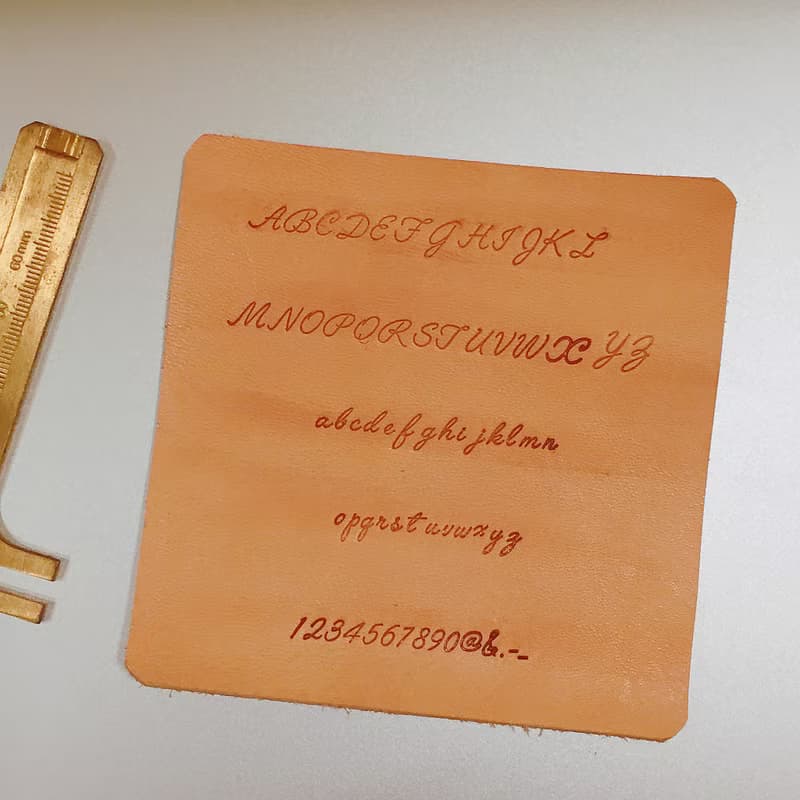 60mm
ABCDEFGHIJKL
MNOPQRSTUVWXYZ
abcdefghijklmn
opqrstuvwxyz
1234567890@&.-_